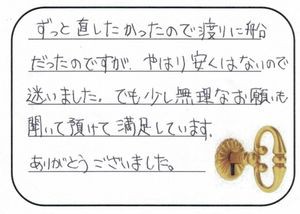 ずっと直したかったので渡りに船
だったのですが、やはり安くはないので
迷いました。でも少し無理なお願いも
聞いて預けて満足しています。
ありがとうございました。